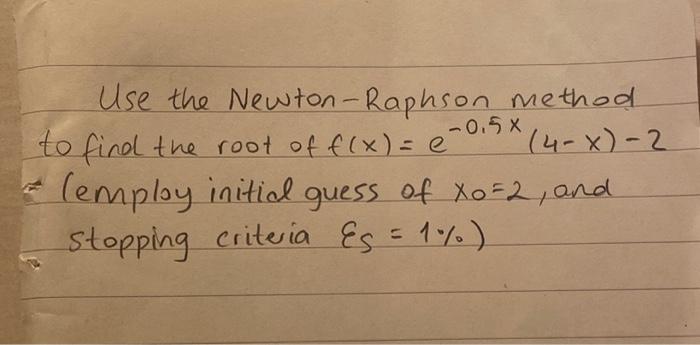 Use the Newton-Raphson method
to find the root of f(x) = e^-0.5x (4-x)-2
(employ initial guess of x0=2, and
stopping criteria εs = 1%)